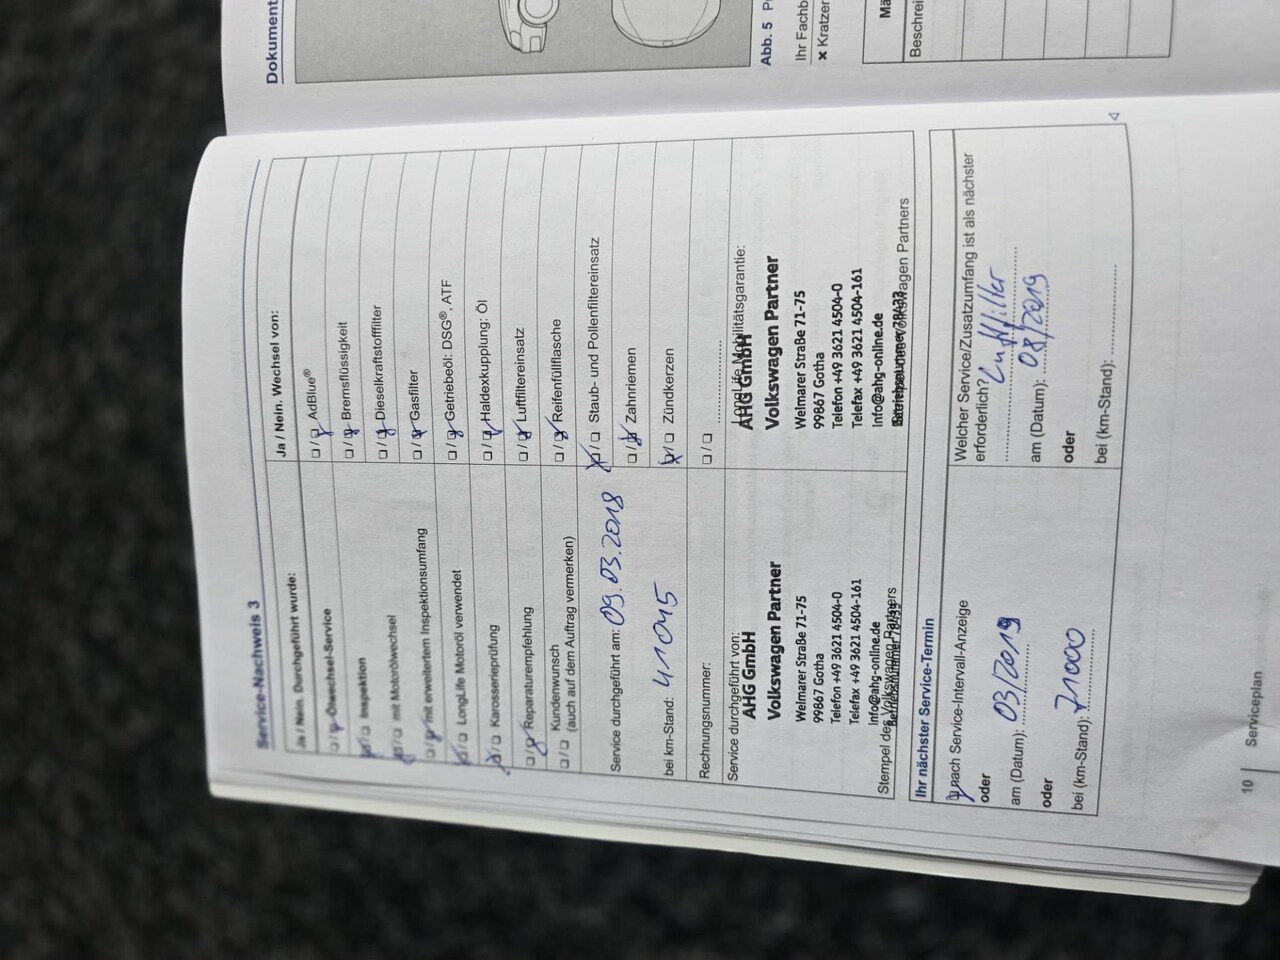 Service-Nachweis 3
Ja / Nein. Durchgeführt wurde:
Ölwechsel-Service
Inspektion
mit Motorölwechsel
mit erweitertem Inspektionsumfang
LongLife Motoröl verwendet
Karosserieprüfung
Reparaturempfehlung
Kundenwunsch
(auch auf dem Auftrag vermerken)
Service durchgeführt am: 09.03.2018
bei km-Stand: 41045
Rechnungsnummer:
Service durchgeführt von:
AHG GmbH
Volkswagen Partner
Weimarer Straße 71-75
99867 Gotha
Telefon +49 3621 4504-0
Telefax +49 3621 4504-161
Info@ahg-online.de
Stempel des Volkswagen Partners
Ja / Nein. Wechsel von:
AdBlue®
Bremsflüssigkeit
Dieselkraftstofffilter
Gasfilter
Getriebeöl: DSG®, ATF
Haldexkupplung: Öl
Luftfiltereinsatz
Reifenfüllflasche
Staub- und Pollenfiltereinsatz
Zahnriemen
Zündkerzen
LongLife Mobilitätsgarantie:
AHG GmbH
Volkswagen Partner
Weimarer Straße 71-75
99867 Gotha
Telefon +49 3621 4504-0
Telefax +49 3621 4504-161
Info@ahg-online.de
Volkswagen Partners
Ihr nächster Service-Termin
nach Service-Intervall-Anzeige
oder
am (Datum): 03/2019
oder
bei (km-Stand): 71000
Welcher Service/Zusatzumfang ist als nächster
erforderlich? Luftfilter
am (Datum): 08/2019
oder
bei (km-Stand):
10 Serviceplan
Dokument
Abb. 5
Ihr Fachb
× Kratzer
Mä
Beschrei